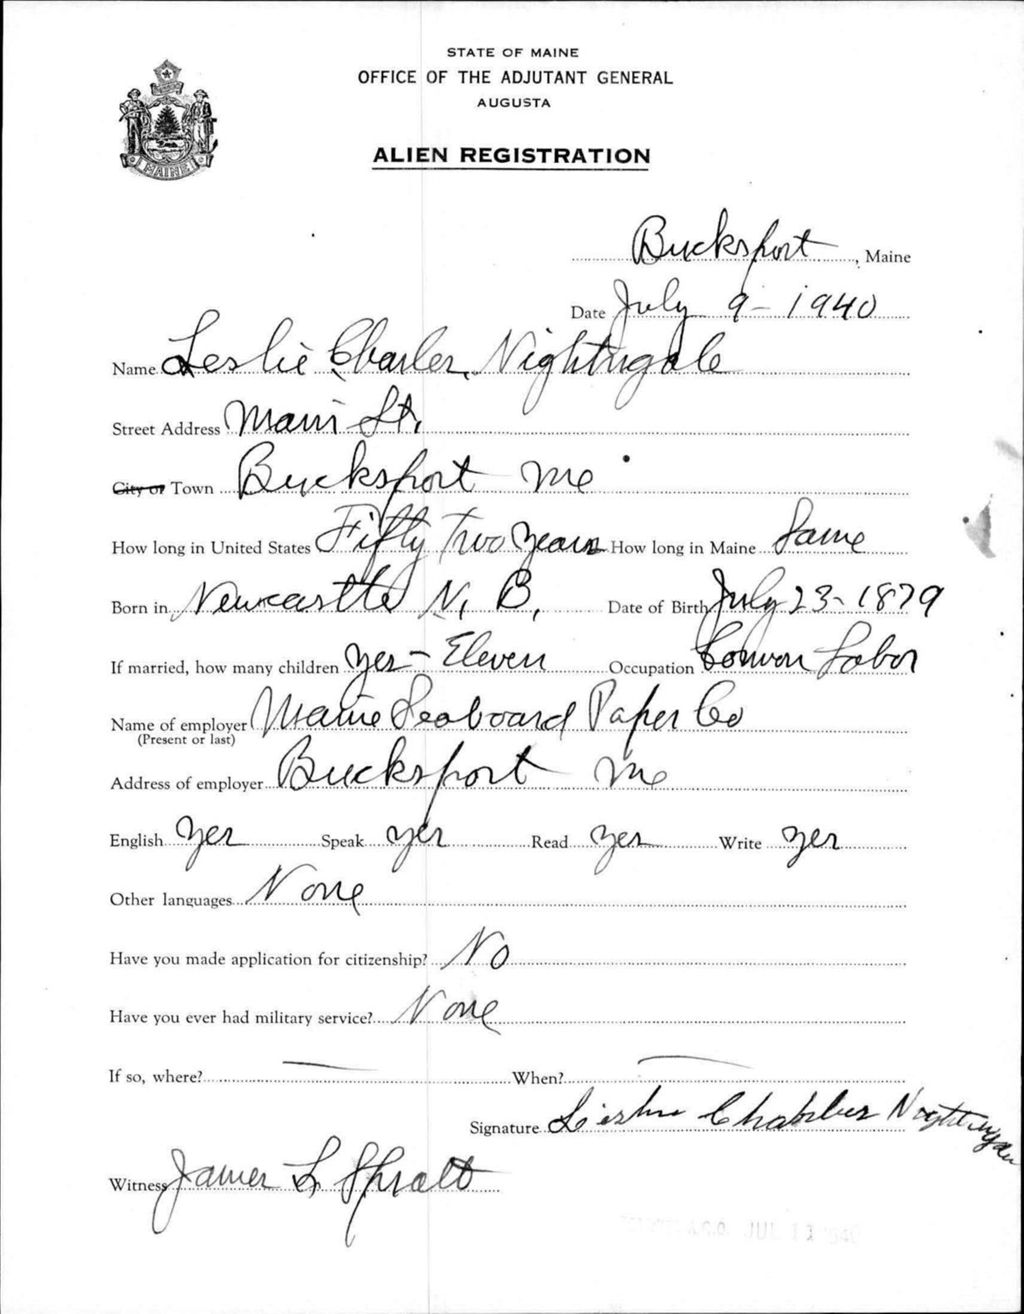 STATE OF MAINE
OFFICE OF THE ADJUTANT GENERAL
AUGUSTA
ALIEN REGISTRATION
MAINE
Bucksport, Maine
Date July 9 - 1940
Name Leslie Charles Nightingale
Street Address Main St.
City or Town Bucksport Me
How long in United States Fifty Two Years How long in Maine Same
Born in Newcastle N. B. Date of Birth July 23 - 1879
If married, how many children Yes - Eleven Occupation Common Labor
Name of employer Maine Seaboard Paper Co
(Present or last)
Address of employer Bucksport Me
English Yes Speak Yes Read Yes Write Yes
Other languages None
Have you made application for citizenship? No
Have you ever had military service? None
If so, where? — When? —
Signature Leslie Charles
Witness James L Spratt
A.G.O. JUL 13 1940